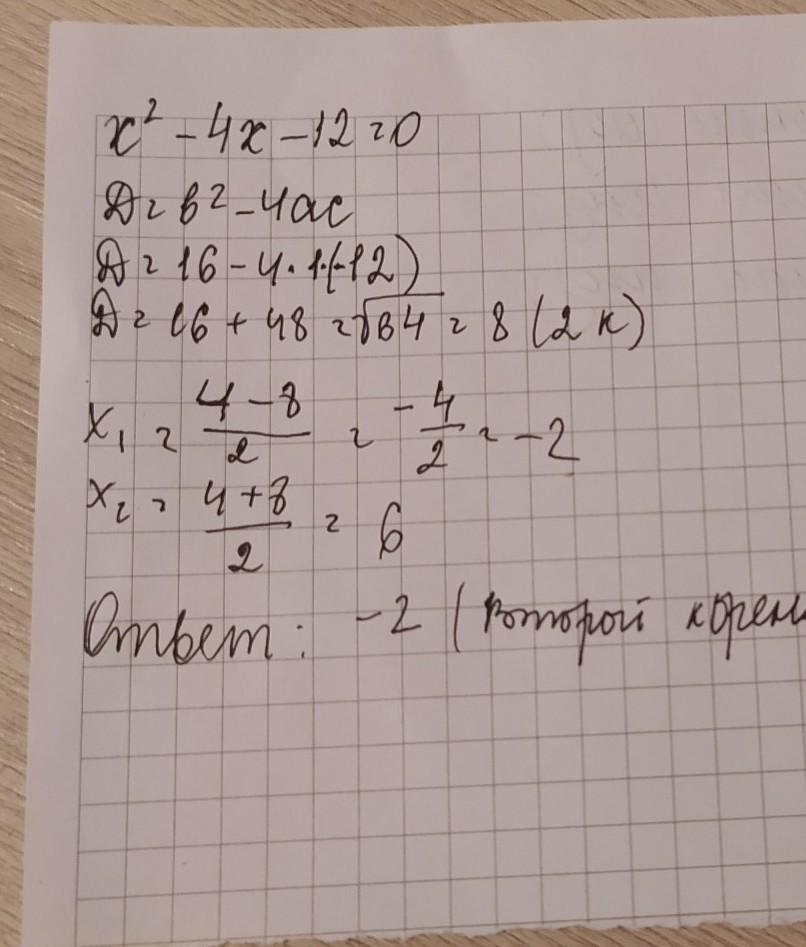 x² - 4x - 12 = 0
D = b² - 4ac
D = 16 - 4 · 1 · (-12)
D = 16 + 48 = √64 = 8 (2 к)
x₁ = (4 - 8)/2 = -4/2 = -2
x₂ = (4 + 8)/2 = 6
Ответ: -2 (второй корен